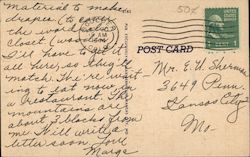 material to make
drapes (to cover
the wood
closet (wardrobe).
I'd have to get it
all here, so they'll
match. We're wait-
ing to eat now in
a restaurant. The
mountains are
about 2 blocks from
me. Will write a
letter soon. Love
Marge
50¢
AM
POST CARD
1
Mr. E. W. Sherman
3649 Penn.
Kansas City
Mo-